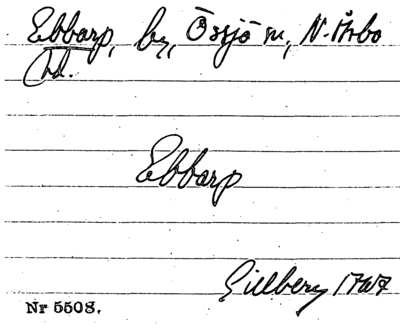 Ebbarp, by, Össjö sn, N. Åsbo
hd.
Ebbarp
Gillberg 1767
Nr 5508.